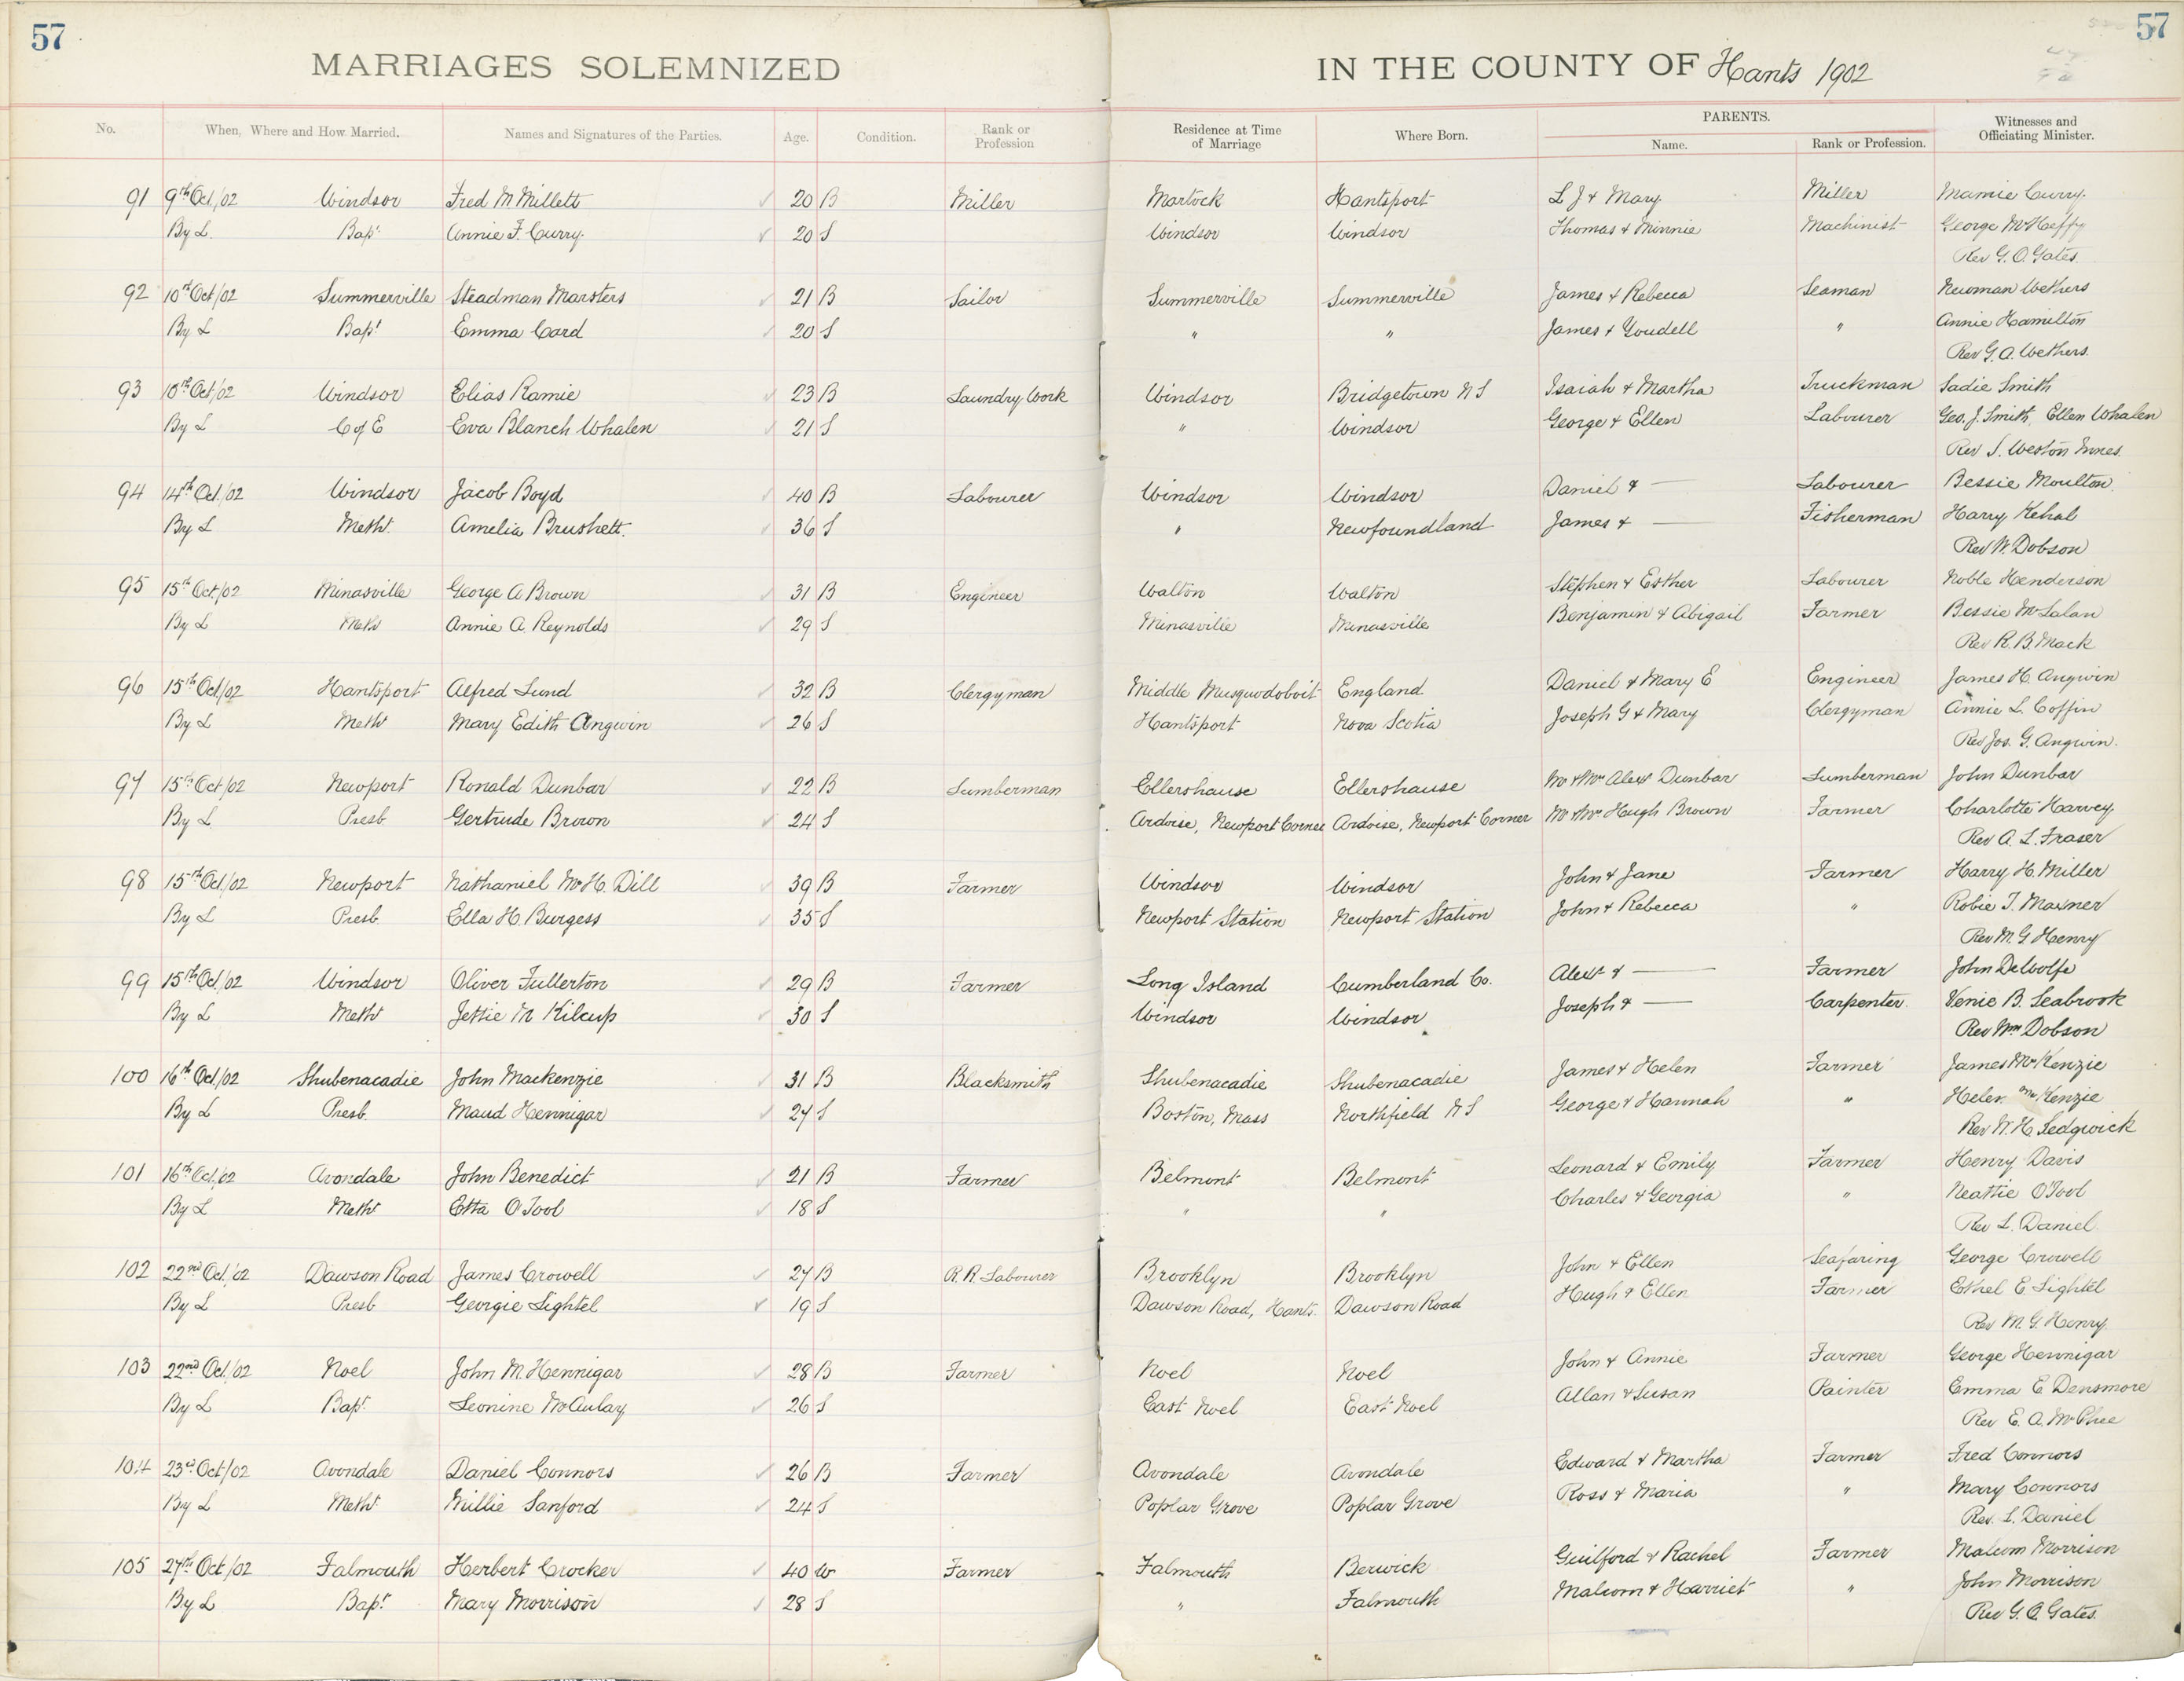 57
57
MARRIAGES SOLEMNIZED
IN THE COUNTY OF Hants 1902
No. When, Where and How Married. Names and Signatures of the Parties. Age. Condition. Rank or Profession Residence at Time of Marriage Where Born. PARENTS. Name. Rank or Profession. Witnesses and Officiating Minister.
91 9th Oct/02 Windsor Fred M Millett 20 B Miller Martock Hantsport L J & Mary Miller Mamie Curry.
By L. Bapt. Annie F. Curry. 20 S Windsor Windsor Thomas & Minnie Machinist George McHeffy
Rev G. O. Gates.
92 10th Oct/02 Summerville Steadman Marsters 21 B Sailor Summerville Summerville James & Rebecca Seaman Newman Wethers
By L Bapt Emma Card 20 S " " James & Youdell " Annie Hamilton
Rev G. A. Wethers.
93 10th Oct/02 Windsor Elias Ramie 23 B Laundry Work Windsor Bridgetown N S Isaiah & Martha Truckman Sadie Smith
By L C of E Eva Blanch Whalen 21 S " Windsor George & Ellen Labourer Geo. J. Smith, Ellen Whalen
Rev S. Weston Jones.
94 14th Oct/02 Windsor Jacob Boyd 40 B Labourer Windsor Windsor Daniel & — Labourer Bessie Moulton.
By L Meth. Amelia Brushett. 36 S " Newfoundland James & — Fisherman Harry
Rev W. Dobson
95 15th Oct/02 Minasville George A Brown 31 B Engineer Walton Walton Stephen & Esther Labourer Noble Henderson
By L Meth Annie A. Reynolds 29 S Minasville Minasville Benjamin & Abigail Farmer Bessie McLalan
Rev R. B. Mack
96 15th Oct/02 Hantsport Alfred Lund 32 B Clergyman Middle Musquodoboit England Daniel & Mary E Engineer James H. Angwin
By L Meth Mary Edith Angwin 26 S Hantsport Nova Scotia Joseph G & Mary Clergyman Annie L. Coffin
Rev Jos. G. Angwin.
97 15th Oct/02 Newport Ronald Dunbar 22 B Lumberman Ellershause Ellershause Mr & Mrs Alex Dunbar Lumberman John Dunbar
By L Presb Gertrude Brown 24 S Ardoise, Newport Corner Ardoise, Newport Corner Mr & Mrs Hugh Brown Farmer Charlotte Harvey
Rev A. L. Fraser
98 15th Oct/02 Newport Nathaniel McH. Dill 39 B Farmer Windsor Windsor John & Jane Farmer Harry H. Miller
By L Presb. Ella H. Burgess 35 S Newport Station Newport Station John & Rebecca " Robie T. Maxner
Rev M. G Henry
99 15th Oct/02 Windsor Oliver Fullerton 29 B Farmer Long Island Cumberland Co. Alexr & — Farmer John DeWolfe
By L Meth Jettie M Kilcup 30 S Windsor Windsor Joseph & — Carpenter. Venie B. Seabrook
Rev Wm Dobson
100 16th Oct/02 Shubenacadie John Mackenzie 31 B Blacksmith Shubenacadie Shubenacadie James & Helen Farmer James McKenzie
By L Presb. Maud Hennigar 27 S Boston, Mass Northfield N S George & Hannah " Helen McKenzie
Rev W. H. Sedgwick
101 16th Oct/02 Avondale John Benedict 21 B Farmer Belmont Belmont Leonard & Emily Farmer Henry Davis
By L Meth Etta O'Tool 18 S " " Charles & Georgia " Neattie O'Tool
Rev L. Daniel.
102 22nd Oct/02 Dawson Road James Crowell 27 B R. R. Labourer Brooklyn Brooklyn John & Ellen Seafaring George Crowell
By L Presb Georgie Lightel 19 S Dawson Road, Hants. Dawson Road Hugh & Ellen Farmer Ethel E Lightel
Rev M. G. Henry.
103 22nd Oct/02 Noel John M. Hennigar 28 B Farmer Noel Noel John & Annie Farmer George Hennigar
By L Bapt. Leonine McAulay 26 S East Noel East Noel Allan & Susan Painter Emma E Densmore
Rev E. A. McPhee
104 23rd Oct/02 Avondale Daniel Connors 26 B Farmer Avondale Avondale Edward & Martha Farmer Fred Connors
By L Meth Millie Sanford 24 S Poplar Grove Poplar Grove Ross & Maria " Mary Connors
Rev. L. Daniel
105 27th Oct/02 Falmouth Herbert Crocker 40 W Farmer Falmouth Berwick Guilford & Rachel Farmer Malcom Morrison
By L Bapt Mary Morrison 28 S " Falmouth Malcom & Harriet " John Morrison
Rev G. O. Gates.